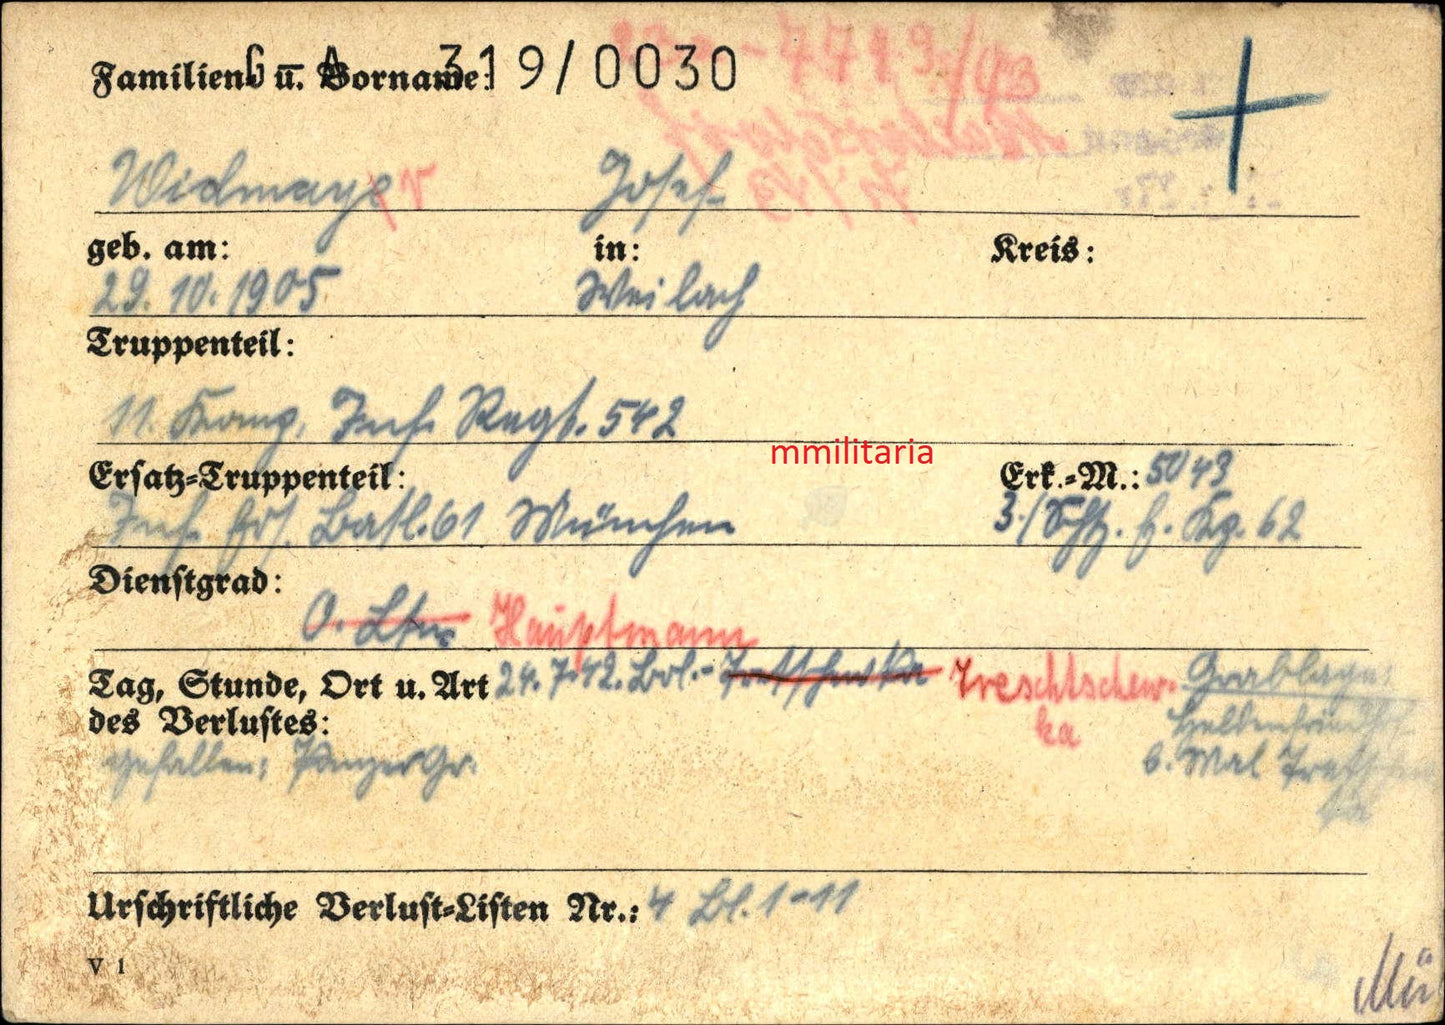 G - A 319/0030
Familien- u. Vorname:
Widmayer Josef
geb. am: in: Kreis:
29. 10. 1905 Weilach
Truppenteil:
11. Komp. Inf. Regt. 542
mmilitaria
Ersatz-Truppenteil: Erk.-M.: 5043
Inf. Ers. Batl. 61 München 3./Sch. E. Kp. 62
Dienstgrad:
O. Ltn. Hauptmann
Tag, Stunde, Ort u. Art 24.7.42. Bol.- Tretschewka Treschtschew- Grablage:
des Verlustes: ka Heldenfriedhof
gefallen; Panzer Gr. b. Mal
Urschriftliche Verlust-Listen Nr.: 4 Bl. 1-11
V 1
Mü